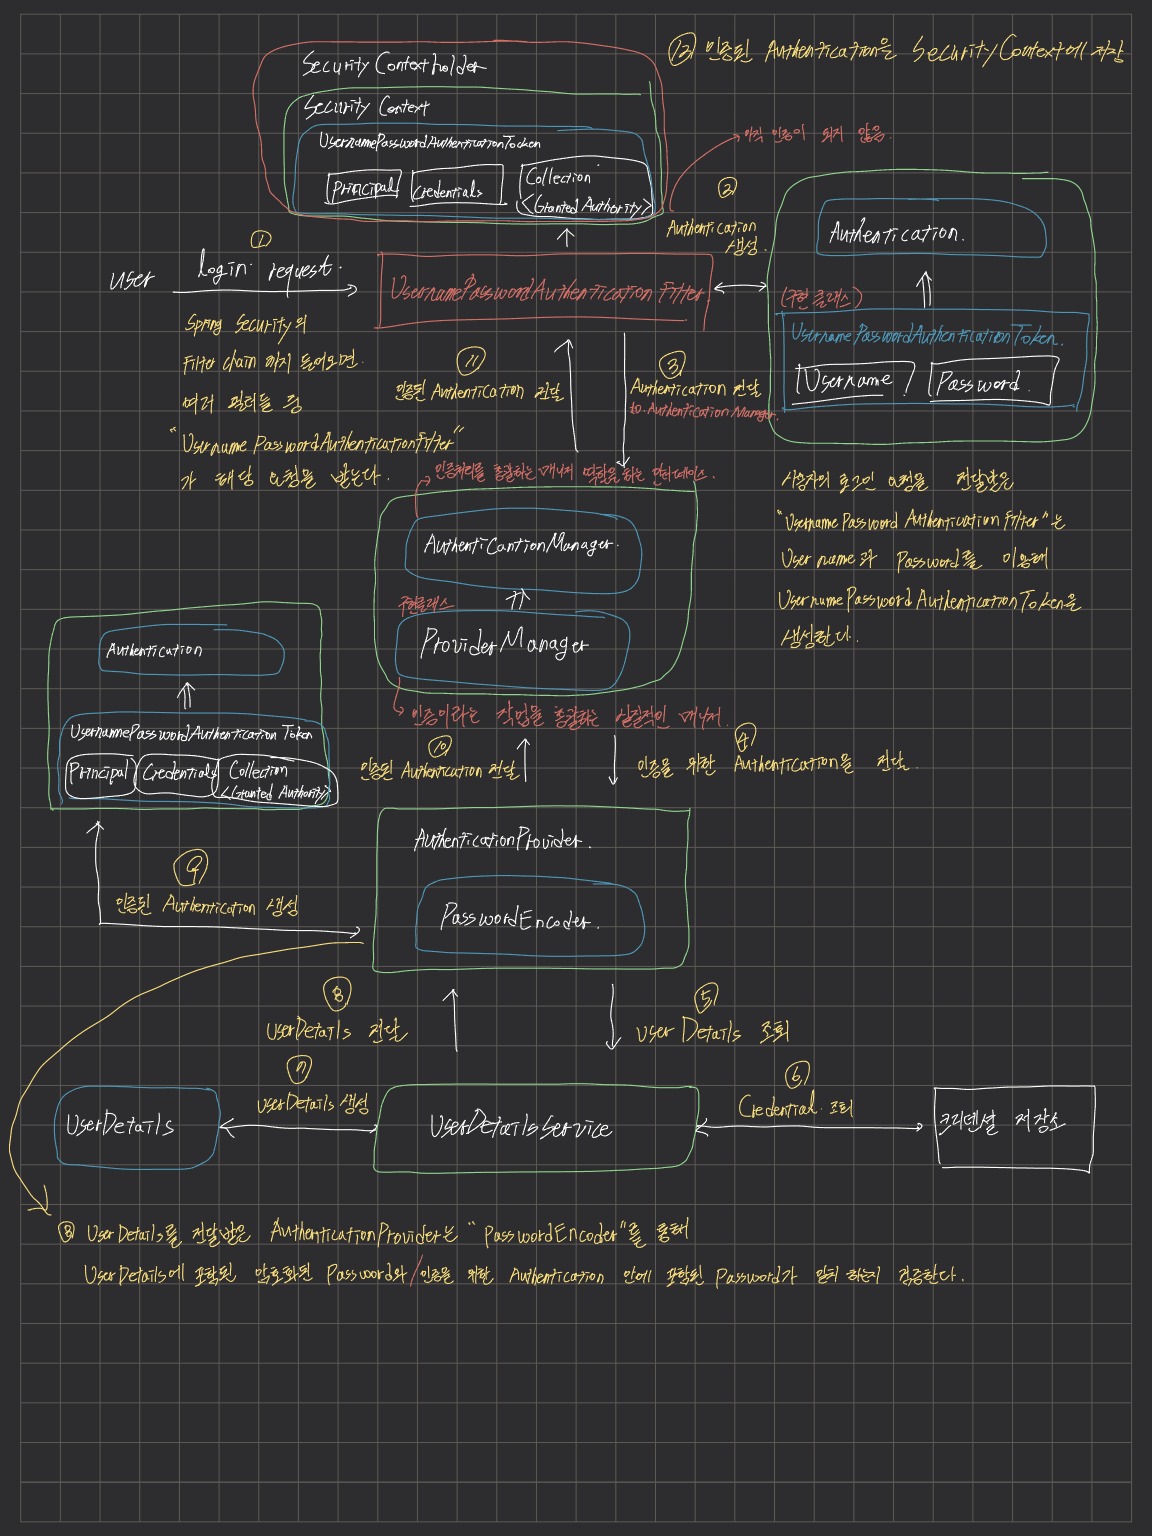 ⑫ 인증된 Authentication을 Security Context에 저장
Security Contextholder
Security Context
UsernamePasswordAuthenticationToken
Principal
Credentials
Collection
<Granted Authority>
아직 인증이 되지 않음.
②
Authentication
생성.
Authentication.
(구현 클래스)
UsernamePasswordAuthenticationToken.
Username
Password.
①
user
login request.
UsernamePasswordAuthentication Filter.
Spring Security의
Filter chain 까지 들어오면.
여러 필터들 중
"Username PasswordAuthenticationFilter"
가 해당 요청을 받는다.
⑪
인증된 Authentication 전달
③
Authentication 전달
to. Authentication Manager.
사용자의 로그인 요청을 전달받은
"Username Password Authentication Filter"는
User name과 Password를 이용해
UsernamePasswordAuthenticationToken을
생성한다.
인증처리를 총괄하는 매니저 역할을 하는 인터페이스.
AuthenticantionManager.
구현클래스
ProviderManager
인증이라는 작업을 총괄하는 실질적인 매니저.
Authentication
UsernamePasswordAuthentication Token
Principal
Credentials
Collection
<Granted Authority>
⑩
인증된 Authentication 전달
④
인증을 위한 Authentication을 전달.
AuthenticationProvider.
PasswordEncoder.
⑨
인증된 Authentication 생성
⑧
UserDetails 전달
⑤
User Details 조회
⑦
UserDetails 생성
⑥
Credential 조회
UserDetails
UserDetailsService
크리덴셜 저장소
⑧ UserDetails를 전달받은 AuthenticationProvider는 "PasswordEncoder"를 통해
UserDetails에 포함된 암호화된 Password와 / 인증을 위한 Authentication 안에 포함된 Password가 일치 하는지 검증한다.